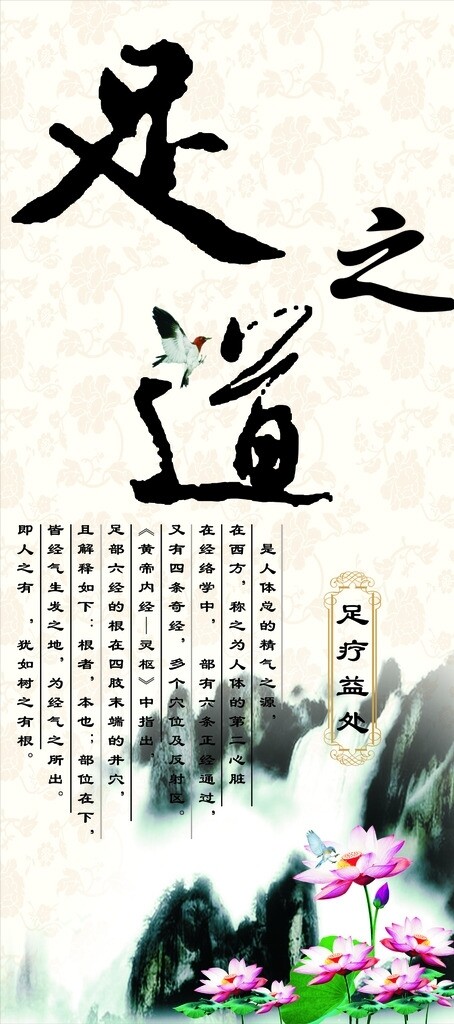 足之道
足疗益处
是人体总的精气之源，
在西方，称之为人体的第二心脏
在经络学中， 部有六条正经通过，
又有四条奇经，多个穴位及反射区。
《黄帝内经—灵枢》中指出，
足部六经的根在四肢末端的井穴，
且解释如下：根者，本也；部位在下，
皆经气生发之地，为经气之所出。
即人之有 ，犹如树之有根。